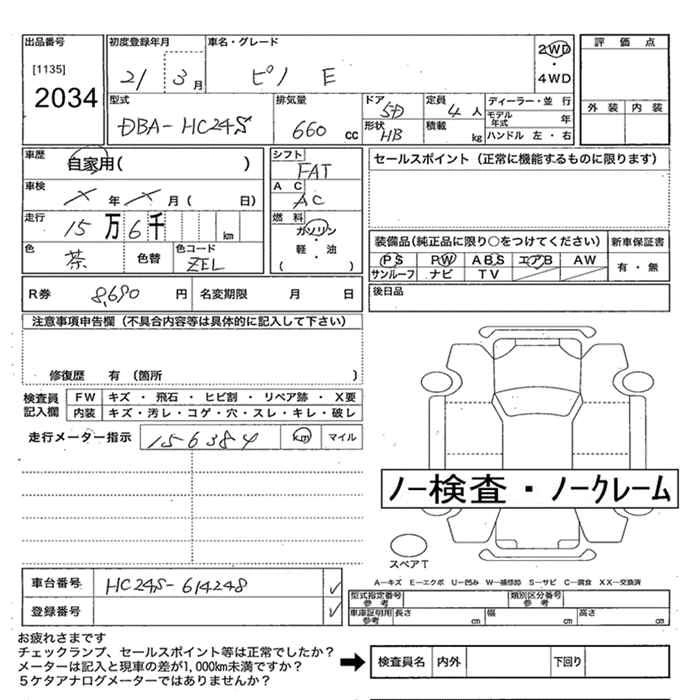 出品番号 初度登録年月 車名・グレード 2WD 評価点
[1135] 21 3月 ピノ E ・
2034 4WD
型式 排気量 ドア 5D 定員 4人 ディーラー・並行 外装 内装
DBA-HC24S 660cc 形状 HB 積載 kg モデル年式 年
ハンドル 左・右
車歴 自家用( ) シフト FAT セールスポイント(正常に機能するものに限ります)
車検 メ年メ月( 日) AC AC
走行 15万6千 km 燃料 ガソリン
軽・油
( )
色 茶 色替 色コード ZEL
装備品(純正品に限り○をつけてください) 新車保証書
PS PW ABS エアB AW 有・無
サンルーフ ナビ TV
R券 8,690円 名変期限 月 日 後日品
注意事項申告欄(不具合内容等は具体的に記入して下さい)
修復歴 有(箇所 )
検査員記入欄 FW キズ・飛石・ヒビ割・リペア跡・X要
内装 キズ・汚レ・コゲ・穴・スレ・キレ・破レ
走行メーター指示 156384 km マイル
ノー検査・ノークレーム
スペアT
A−キズ E−エクボ U−凹み W−補修跡 S−サビ C−腐食 XX−交換済
車台番号 HC24S-614248 ✓
登録番号 ✓
型式指定番号 参考 類別区分番号 参考
車庫証明用 参考 長さ cm 幅 cm 高さ cm
お疲れさまです
チェックランプ、セールスポイント等は正常でしたか?
メーターは記入と現車の差が1,000km未満ですか? ➡ 検査員名 内外 下回り
5ケタアナログメーターではありませんか?